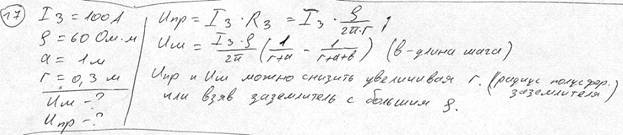 17 Iз = 100А
ρ = 60 Ом·м
a = 1 м
r = 0,3 м
Uш - ?
Uпр - ?
Uпр = Iз · Rз = Iз · ρ/(2π·r) ;
Uш = Iз·ρ/2π (1/(r+a) - 1/(r+a+в)) (в-длина шага)
Uпр и Uш можно снизить увеличивая r. (радиус полусфер. заземлителя)
или взяв заземлитель с большим ρ.